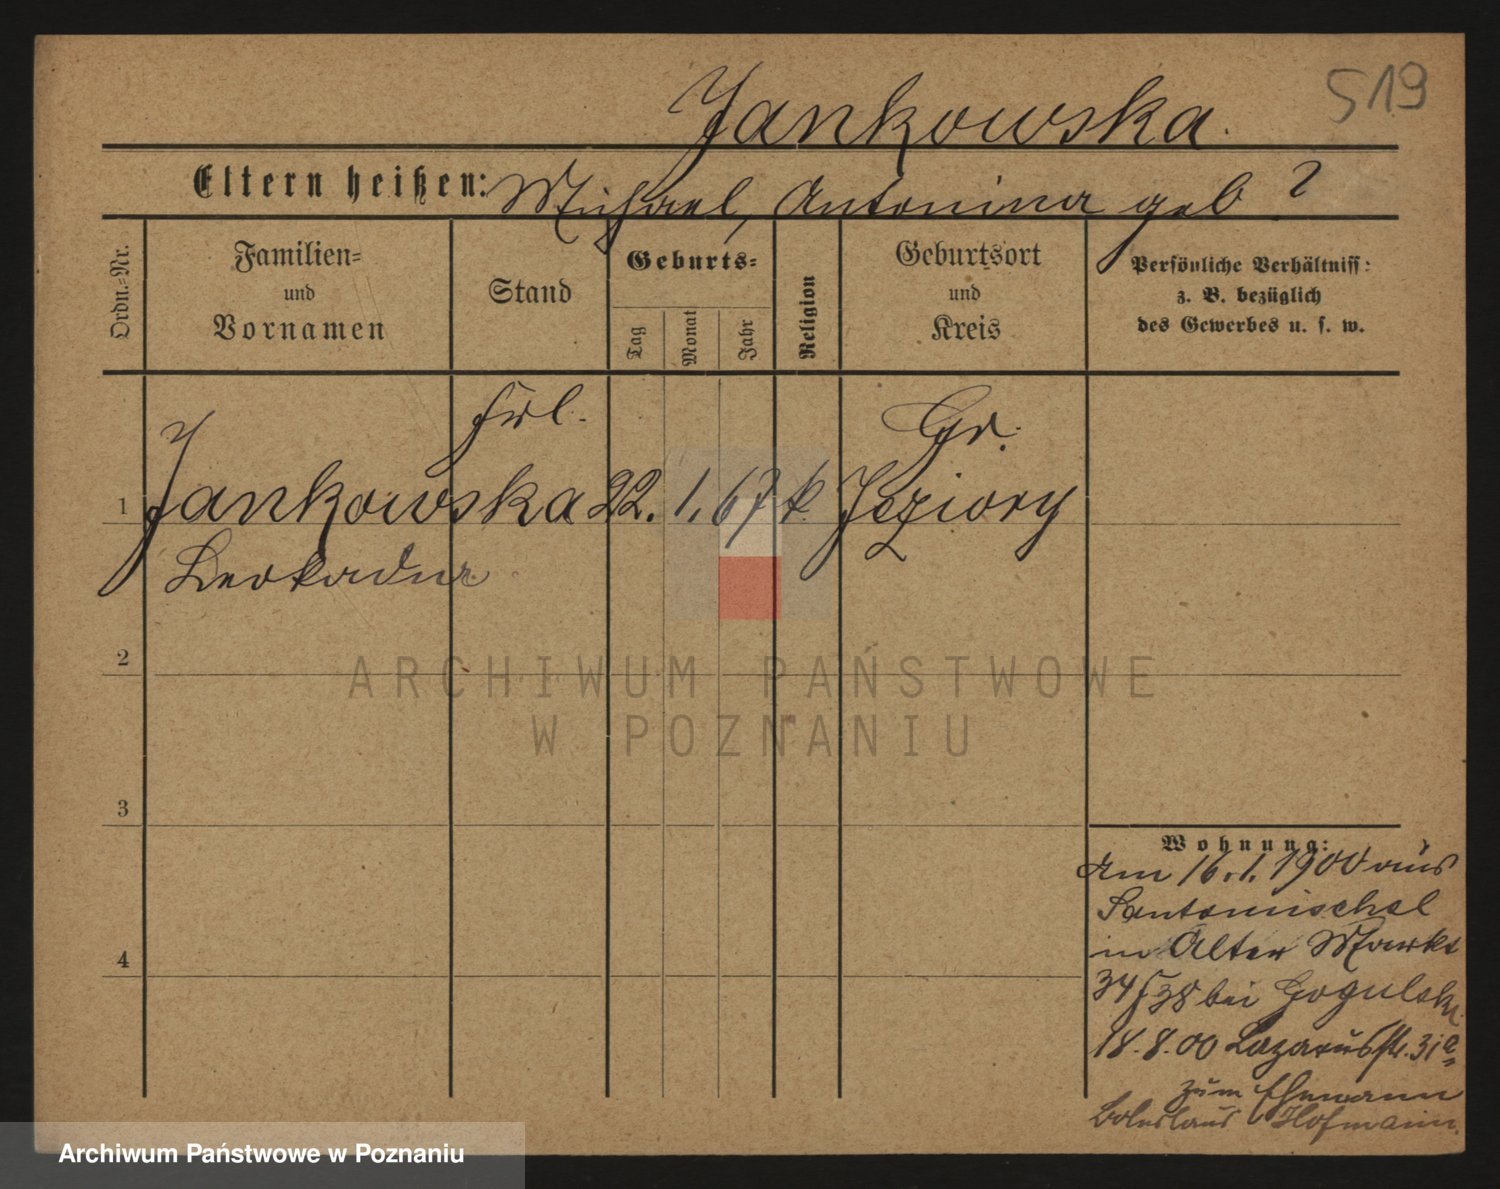 519
Jankowska.
Eltern heißen: Michael, Antonina geb ?
Ordn.-Nr.
Familien-
und
Vornamen
Stand
Geburts-
Tag
Monat
Jahr
Religion
Geburtsort
und
Kreis
Persönliche Verhältniss:
z. B. bezüglich
des Gewerbes u. s. w.
Frl.
Gr.
1 Jankowska 22. 1. 67 k. Jeziory
Leokadia
2
ARCHIWUM PAŃSTWOWE
W POZNANIU
3
Wohnung:
Am 16.1.1900 aus
Santomischel
4
in Alter Markt
34/38 bei Gogulski
18.8.00 Lazarusstr. 31
zum Ehemann
Boleslaus Hofmann.
Archiwum Państwowe w Poznaniu